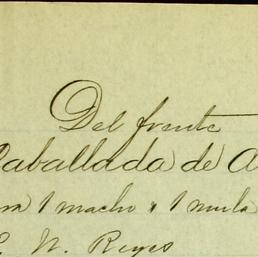 Del frente
Caballada de
1 macho y 1 mula
N. Reyes